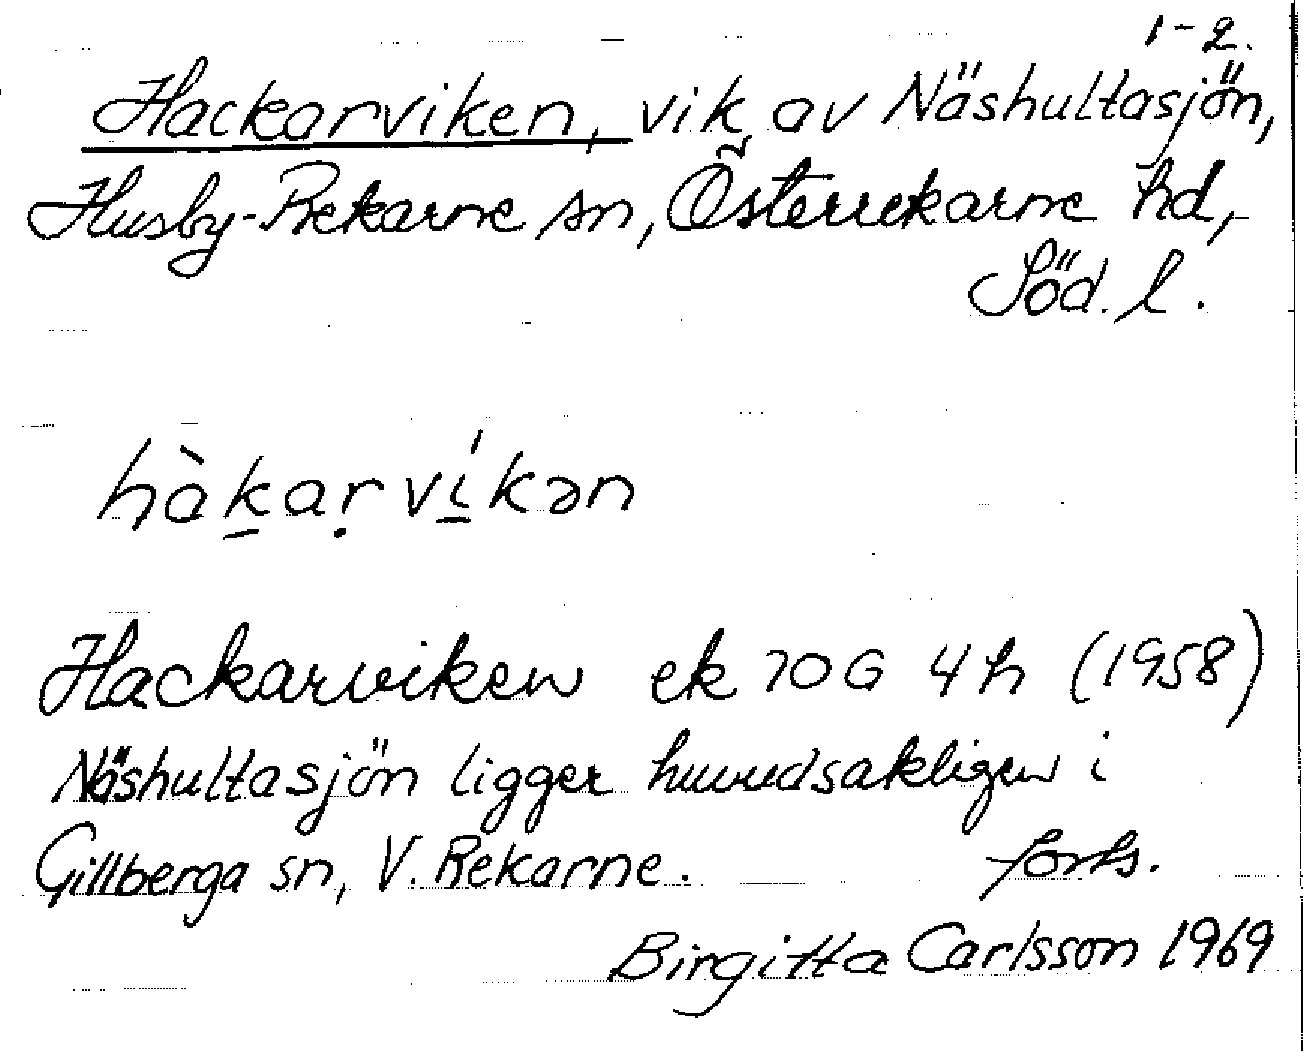 1-2.
Hackarviken, vik av Näshultasjön,
Husby-Rekarne sn, Österrekarne hd,
Söd. l.
hàk̲aṛ ví̲kən
Hackarviken ek 10G 4h (1958)
Näshultasjön ligger huvudsakligen i
Gillberga sn, V. Rekarne. forts.
Birgitta Carlsson 1969